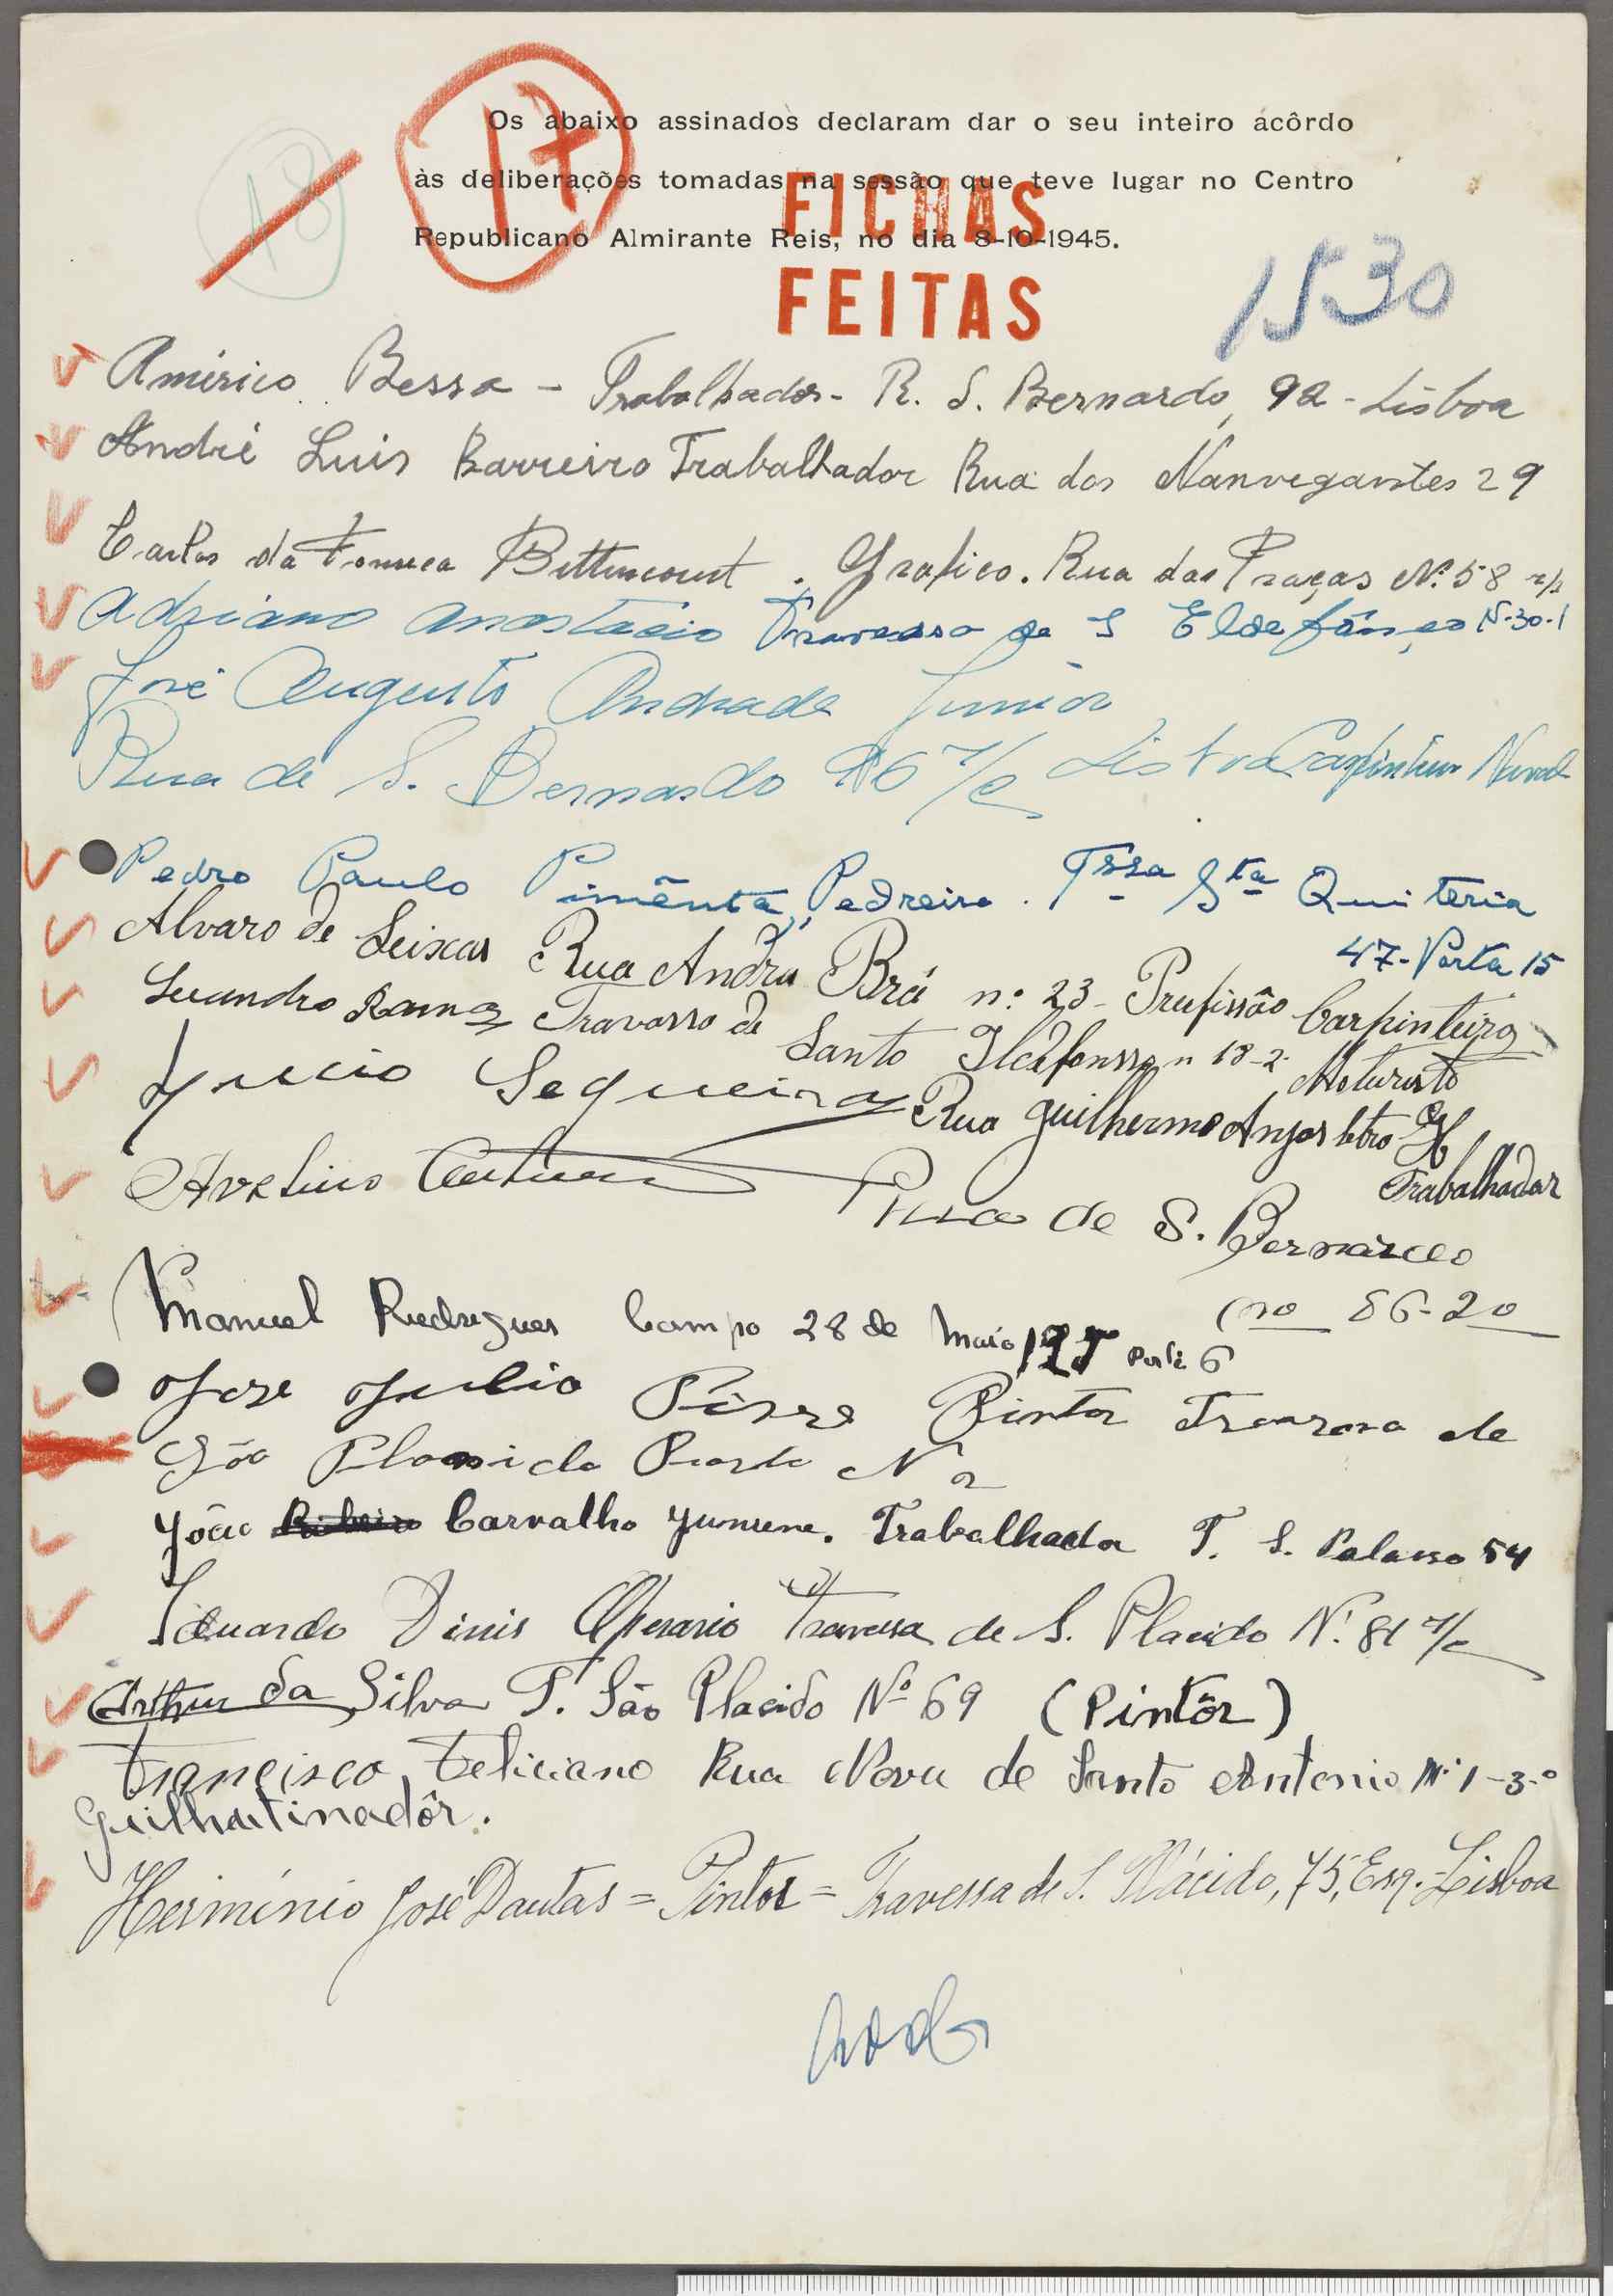 17
18
Os abaixo assinados declaram dar o seu inteiro acôrdo
às deliberações tomadas na sessão que teve lugar no Centro
Republicano Almirante Reis, no dia 8-10-1945.
FICHAS
FEITAS
1530
Américo Bessa - Trabalhador - R. S. Bernardo, 92 - Lisboa
André Luis Barreiro Trabalhador Rua dos Nanvegantes 29
Carlos da Fonseca Bettencourt . Grafico. Rua das Praças Nº 58 r/c
Adriano Anastacio Travessa de S Eldefonço N-30-1
José Augusto Andrade Junior
Rua de S. Bernardo 6 r/c Lisboa Carpinteiro Naval
Pedro Paulo Pimênta, Pedreiro. Tssa Sta Quiteria
47-Porta 15
Alvaro de Seixas Rua André Brá nº 23 - Profissão Carpinteiro
Luandro Ramos Travasso de Santo Ildefonsso n 18-2. Moturista
Lucio Sequeira Rua Guilherme Anjos letro H
Trabalhador
Avelino Antunes Rua de S. Bernardo
no 86-2o
Manuel Rodrigues Campo 28 de Maio 125 Porta 6
Jose Julio Pires Pintor Travessa de
São Plasido Porta N 2
João Ribeiro Carvalho . Trabalhador T. S. 54
Eduardo Dinis Operario Travessa de S. Placido Nº 81 r/c
Arthur da Silva T. São Placido Nº 69 (Pintôr)
Francisco Feliciano Rua Nova de Santo Antonio Nº 1-3-º
Guilhatinadôr.
Herminio José Dantas = Pintor = Travessa de S. Plácido, 75, Esq. - Lisboa